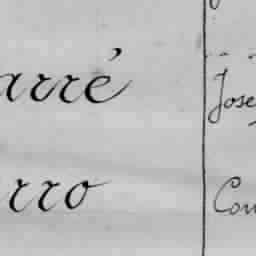 arré
Jose
rro
Con